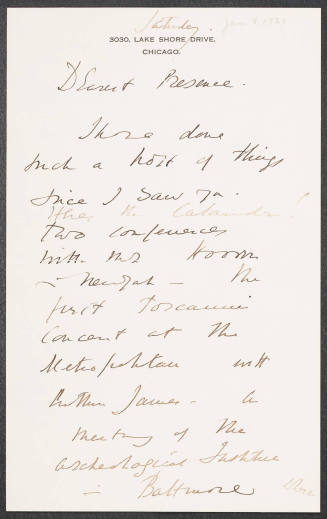 Saturday. Jan 8. 1921
3030, LAKE SHORE DRIVE.
CHICAGO.
Dearest Presence.
I have done
such a host of things
since I saw you.
the Calendar!
two conferences
with Mr Hoover
in New York – The
first Toscanini
Concert at the
Metropolitan with
Arthur James – a
meeting of the
Archeological Institute
in Baltimore